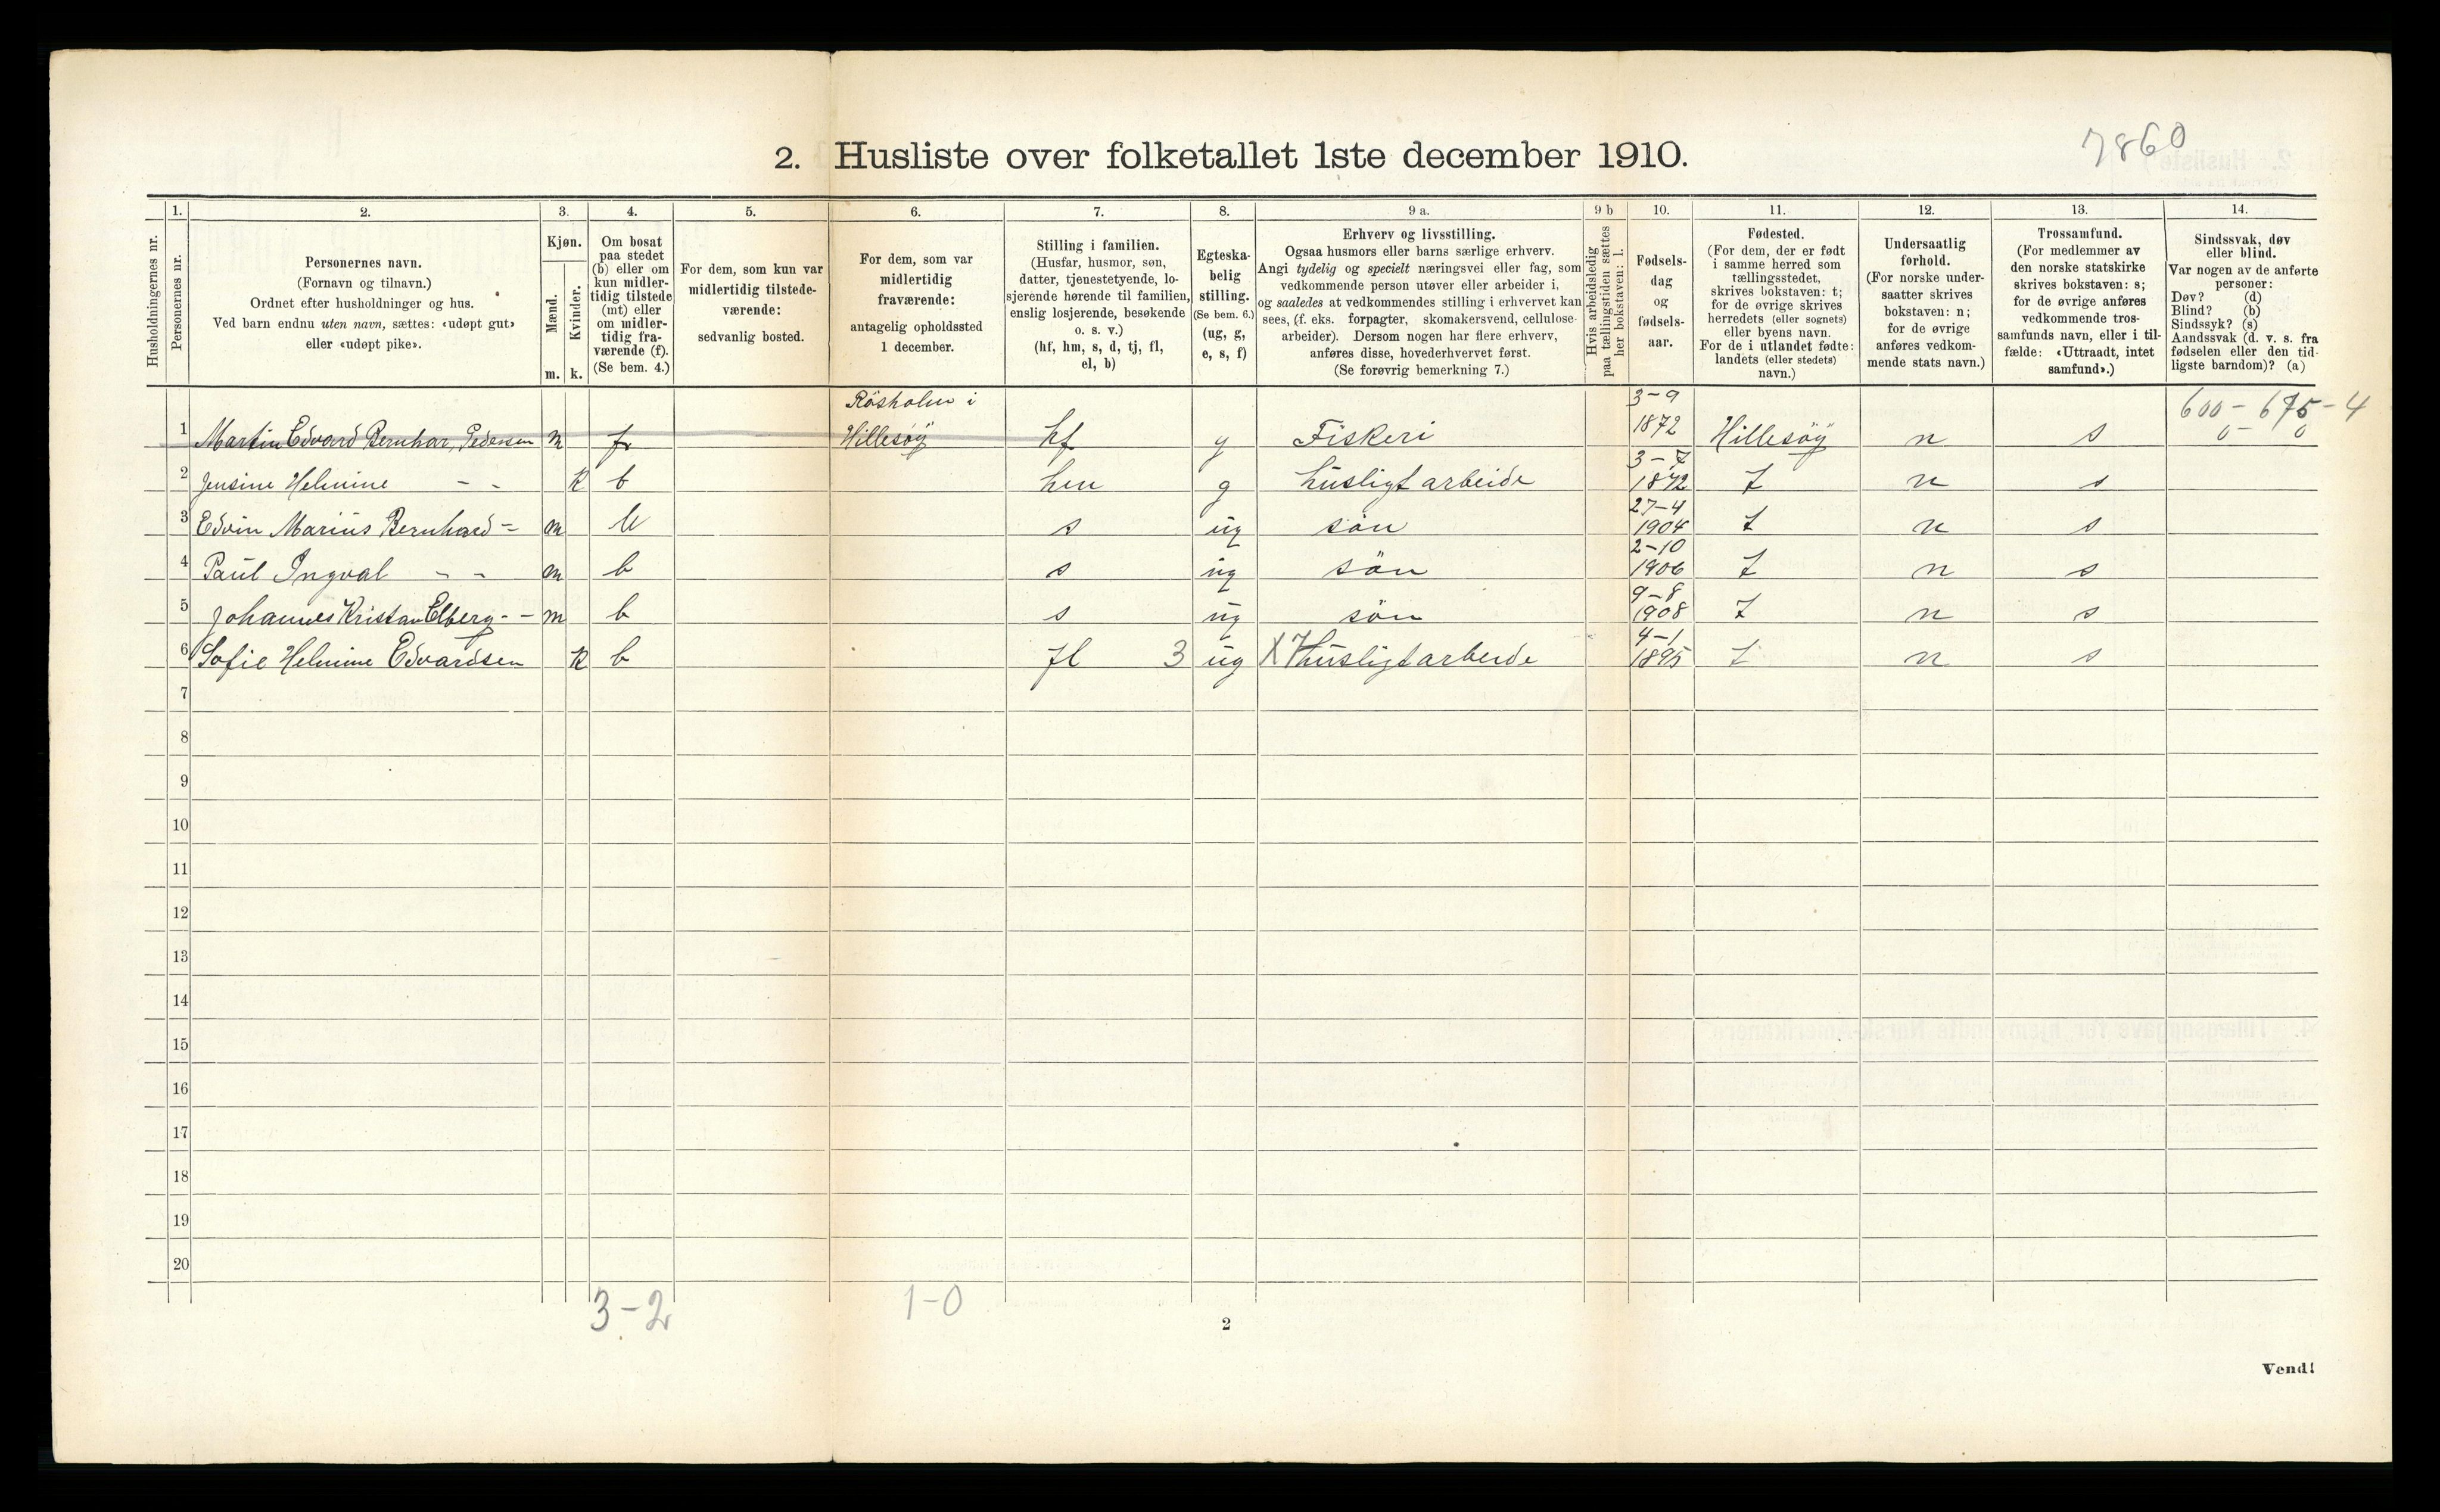 7860
2. Husliste over folketallet 1ste december 1910.
Husholdningernes nr.
1. Personernes nr.
2. Personernes navn.
(Fornavn og tilnavn.)
Ordnet efter husholdninger og hus.
Ved barn endnu uten navn, sættes: «udøpt gut»
eller «udøpt pike».
3. Kjøn.
Mænd. m.
Kvinder. k.
4. Om bosat
paa stedet
(b) eller om
kun midler-
tidig tilstede
(mt) eller
om midler-
tidig fra-
værende (f).
(Se bem. 4.)
5. For dem, som kun var
midlertidig tilstede-
værende:
sedvanlig bosted.
6. For dem, som var
midlertidig
fraværende:
antagelig opholdssted
1 december.
7. Stilling i familien.
(Husfar, husmor, søn,
datter, tjenestetyende, lo-
sjerende hørende til familien,
enslig losjerende, besøkende
o. s. v.)
(hf, hm, s, d, tj, fl,
el, b)
8. Egteska-
belig
stilling.
(Se bem. 6.)
(ug, g,
e, s, f)
9 a. Erhverv og livsstilling.
Ogsaa husmors eller barns særlige erhverv.
Angi tydelig og specielt næringsvei eller fag, som
vedkommende person utøver eller arbeider i,
og saaledes at vedkommendes stilling i erhvervet kan
sees, (f. eks. forpagter, skomakersvend, cellulose-
arbeider). Dersom nogen har flere erhverv,
anføres disse, hovederhvervet først.
(Se forøvrig bemerkning 7.)
9 b Hvis arbeidsledig
paa tællingstiden sættes
her bokstaven: l.
10. Fødsels-
dag
og
fødsels-
aar.
11. Fødested.
(For dem, der er født
i samme herred som
tællingsstedet,
skrives bokstaven: t;
for de øvrige skrives
herredets (eller sognets)
eller byens navn.
For de i utlandet fødte:
landets (eller stedets)
navn.)
12. Undersaatlig
forhold.
(For norske under-
saatter skrives
bokstaven: n;
for de øvrige
anføres vedkom-
mende stats navn.)
13. Trossamfund.
(For medlemmer av
den norske statskirke
skrives bokstaven: s;
for de øvrige anføres
vedkommende tros-
samfunds navn, eller i til-
fælde: «Uttraadt, intet
samfund».)
14. Sindssvak, døv
eller blind.
Var nogen av de anførte
personer:
Døv? (d)
Blind? (b)
Sindssyk? (s)
Aandssvak (d. v. s. fra
fødselen eller den tid-
ligste barndom)? (a)
Røsholm i 3-9 600 - 675 - 4
1 Martin Edvard Bernhar, Pedersen m f Hillesöÿ hf g Fiskeri 1872 Hillesöÿ n s 0 - 0
3-7
2 Jensine Helmine - - k b hm g husligt arbeide 1872 t n s
27-4
3 Edvin Marius Bernhard - m b s ug sön 1904 t n s
2-10
4 Paul Ingval - - m b s ug sön 1906 t n s
9-8
5 Johannes Kristian Elberg - - m b s ug sön 1908 t n s
4-1
6 Sofie Helmine Edvardsen k b fl 3 ug X husligt arbeide 1895 t n s
7
8
9
10
11
12
13
14
15
16
17
18
19
20
3-2 1-0
2
Vend!